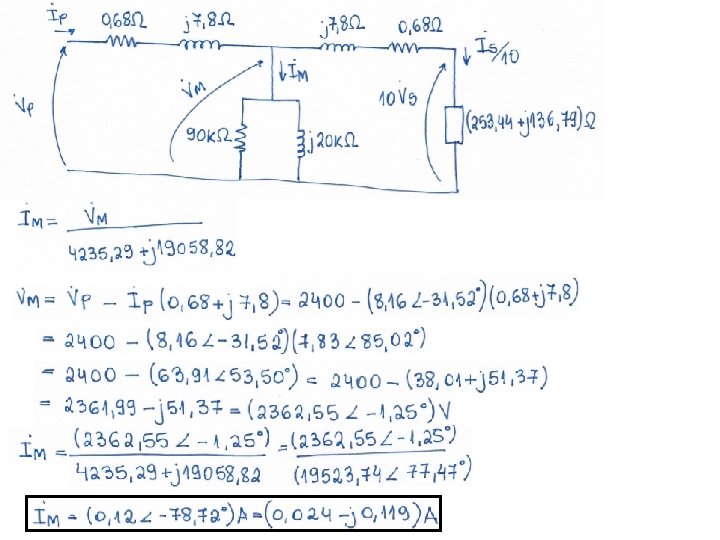 İp 0,68Ω j7,8Ω j7,8Ω 0,68Ω
İs/10
İM
V̇M
10V̇s
V̇p
90kΩ j20kΩ (253,44+j136,79)Ω
İM = V̇M / 4235,29+j19058,82
V̇M = V̇p - İp(0,68+j7,8) = 2400 - (8,16∠-31,52°)(0,68+j7,8)
= 2400 - (8,16∠-31,52°)(7,83∠85,02°)
= 2400 - (63,91∠53,50°) = 2400 - (38,01+j51,37)
= 2361,99 - j51,37 = (2362,55∠-1,25°)V
İM = (2362,55∠-1,25°) / 4235,29+j19058,82 = (2362,55∠-1,25°) / (19523,74∠77,47°)
İM = (0,12∠-78,72°)A = (0,024-j0,119)A